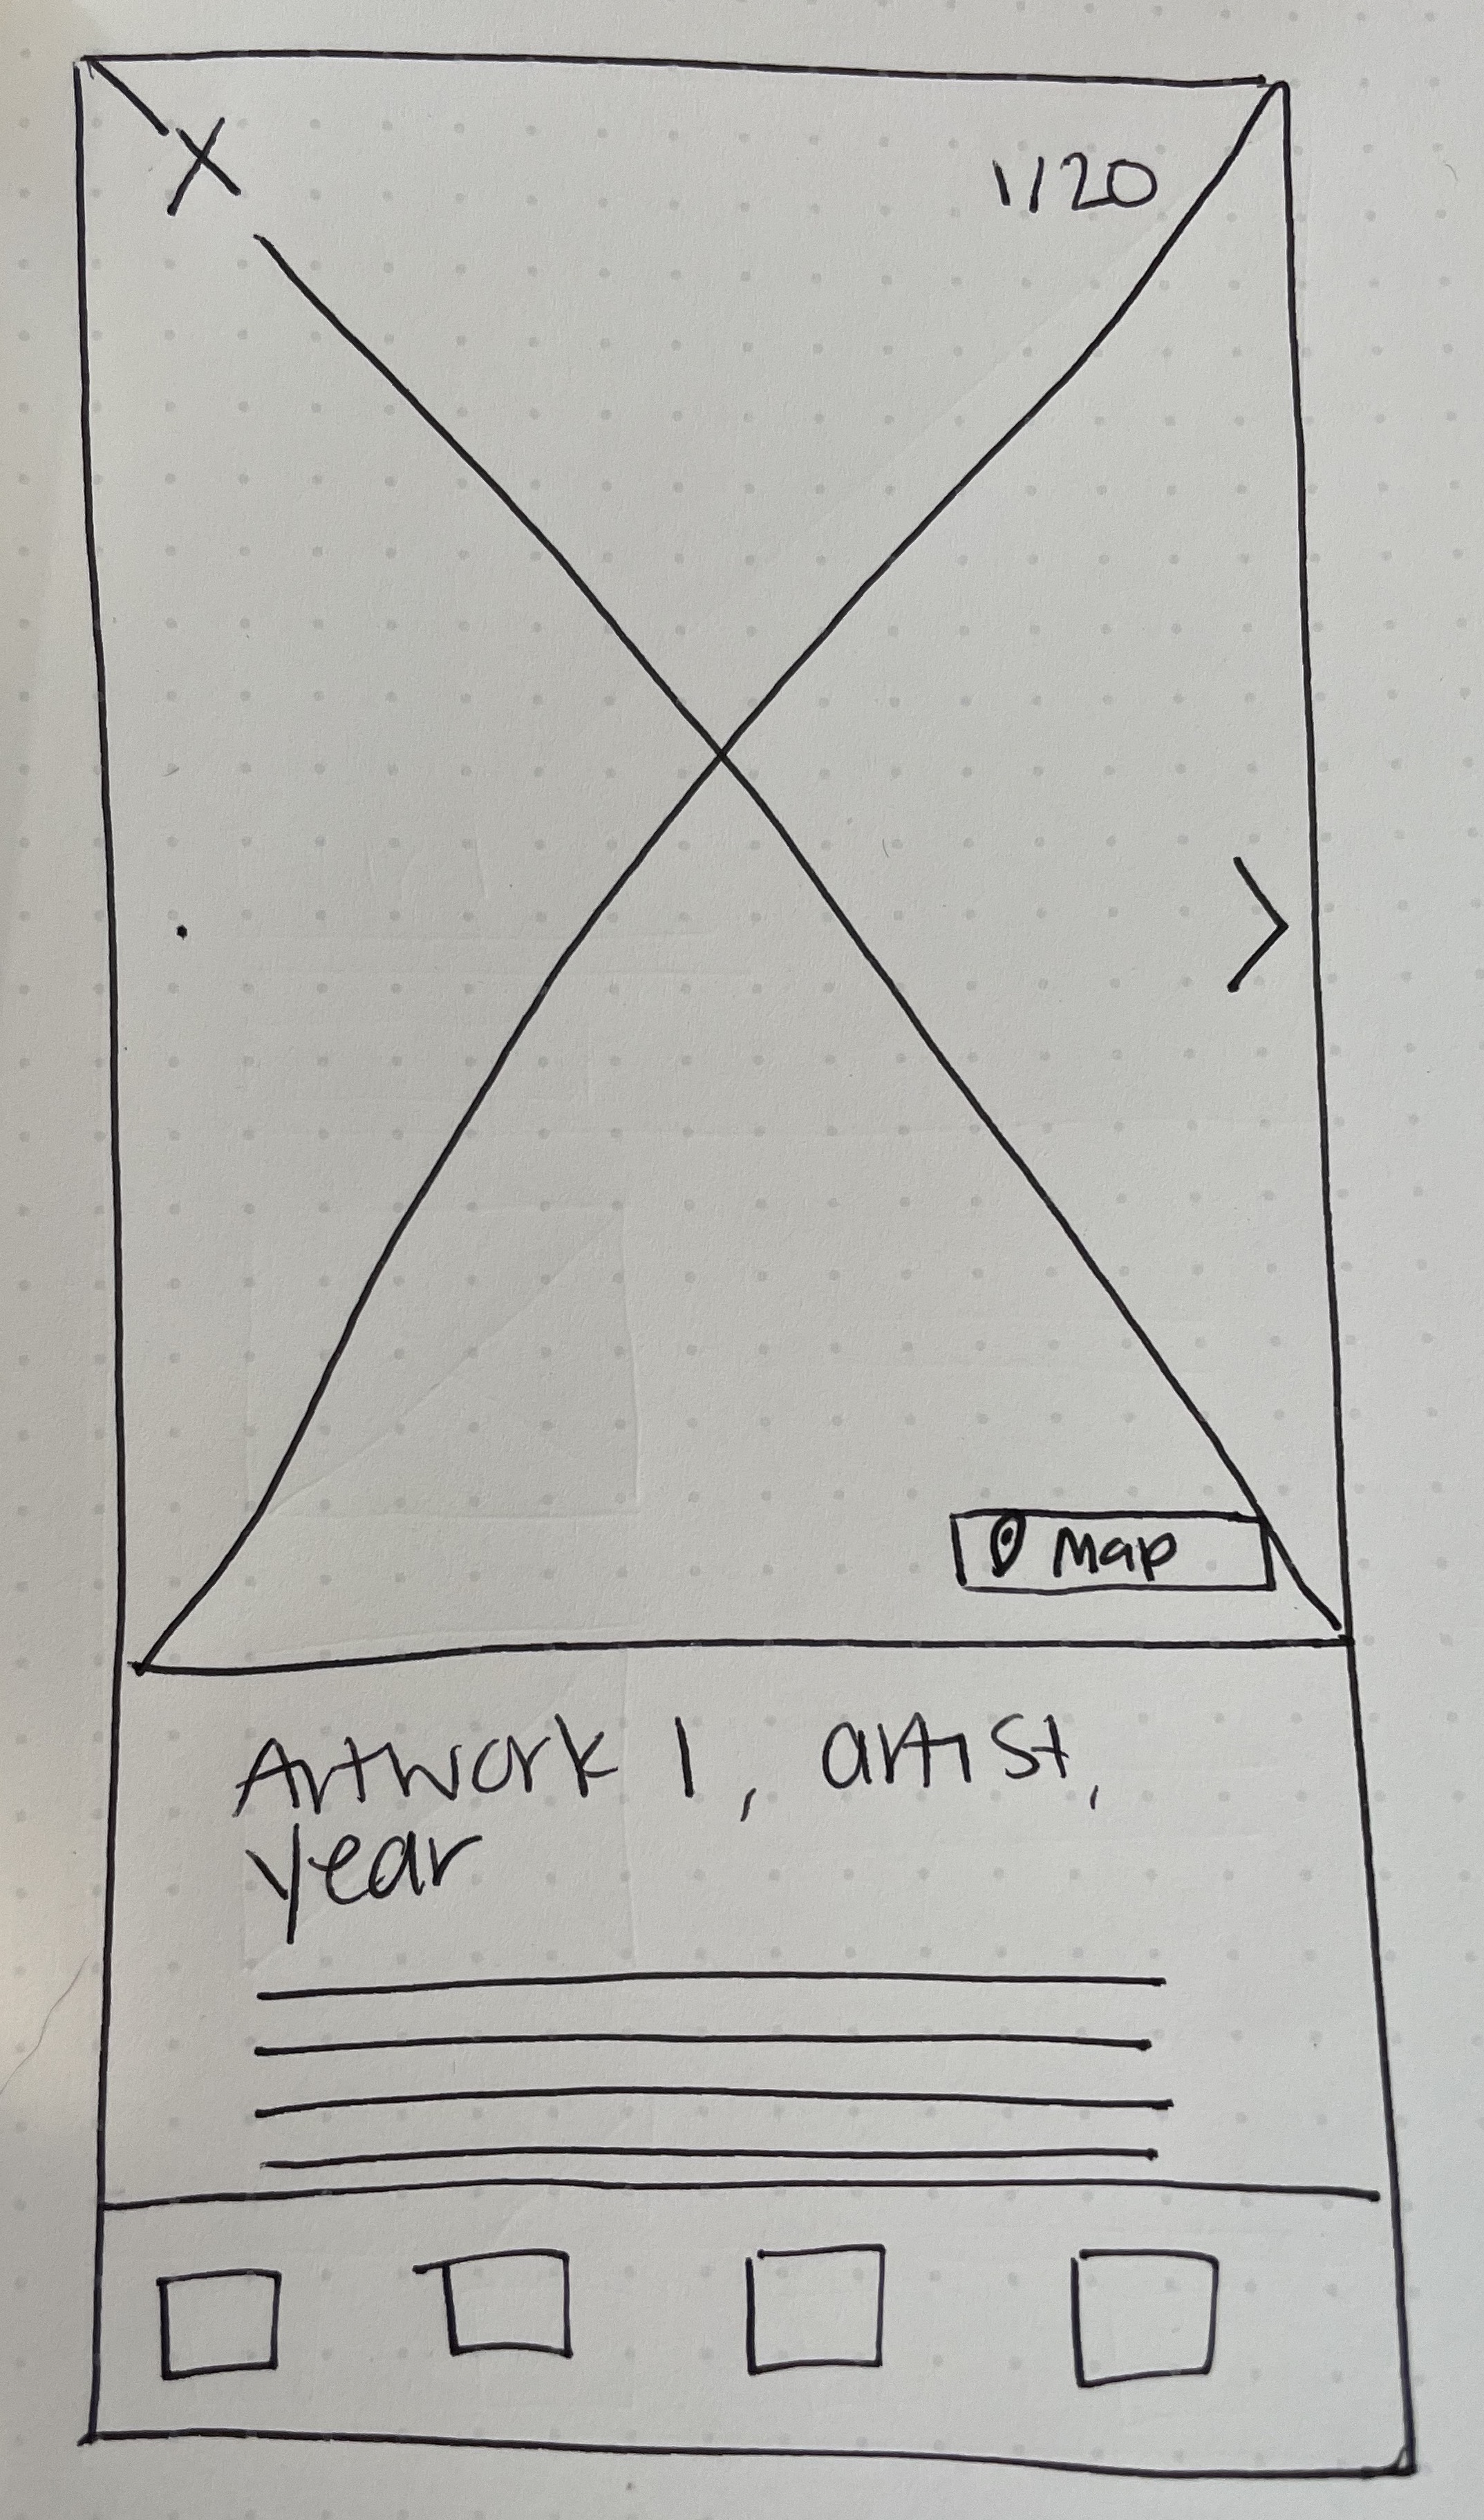 X
1/20
>
Map
Artwork 1, artist,
year